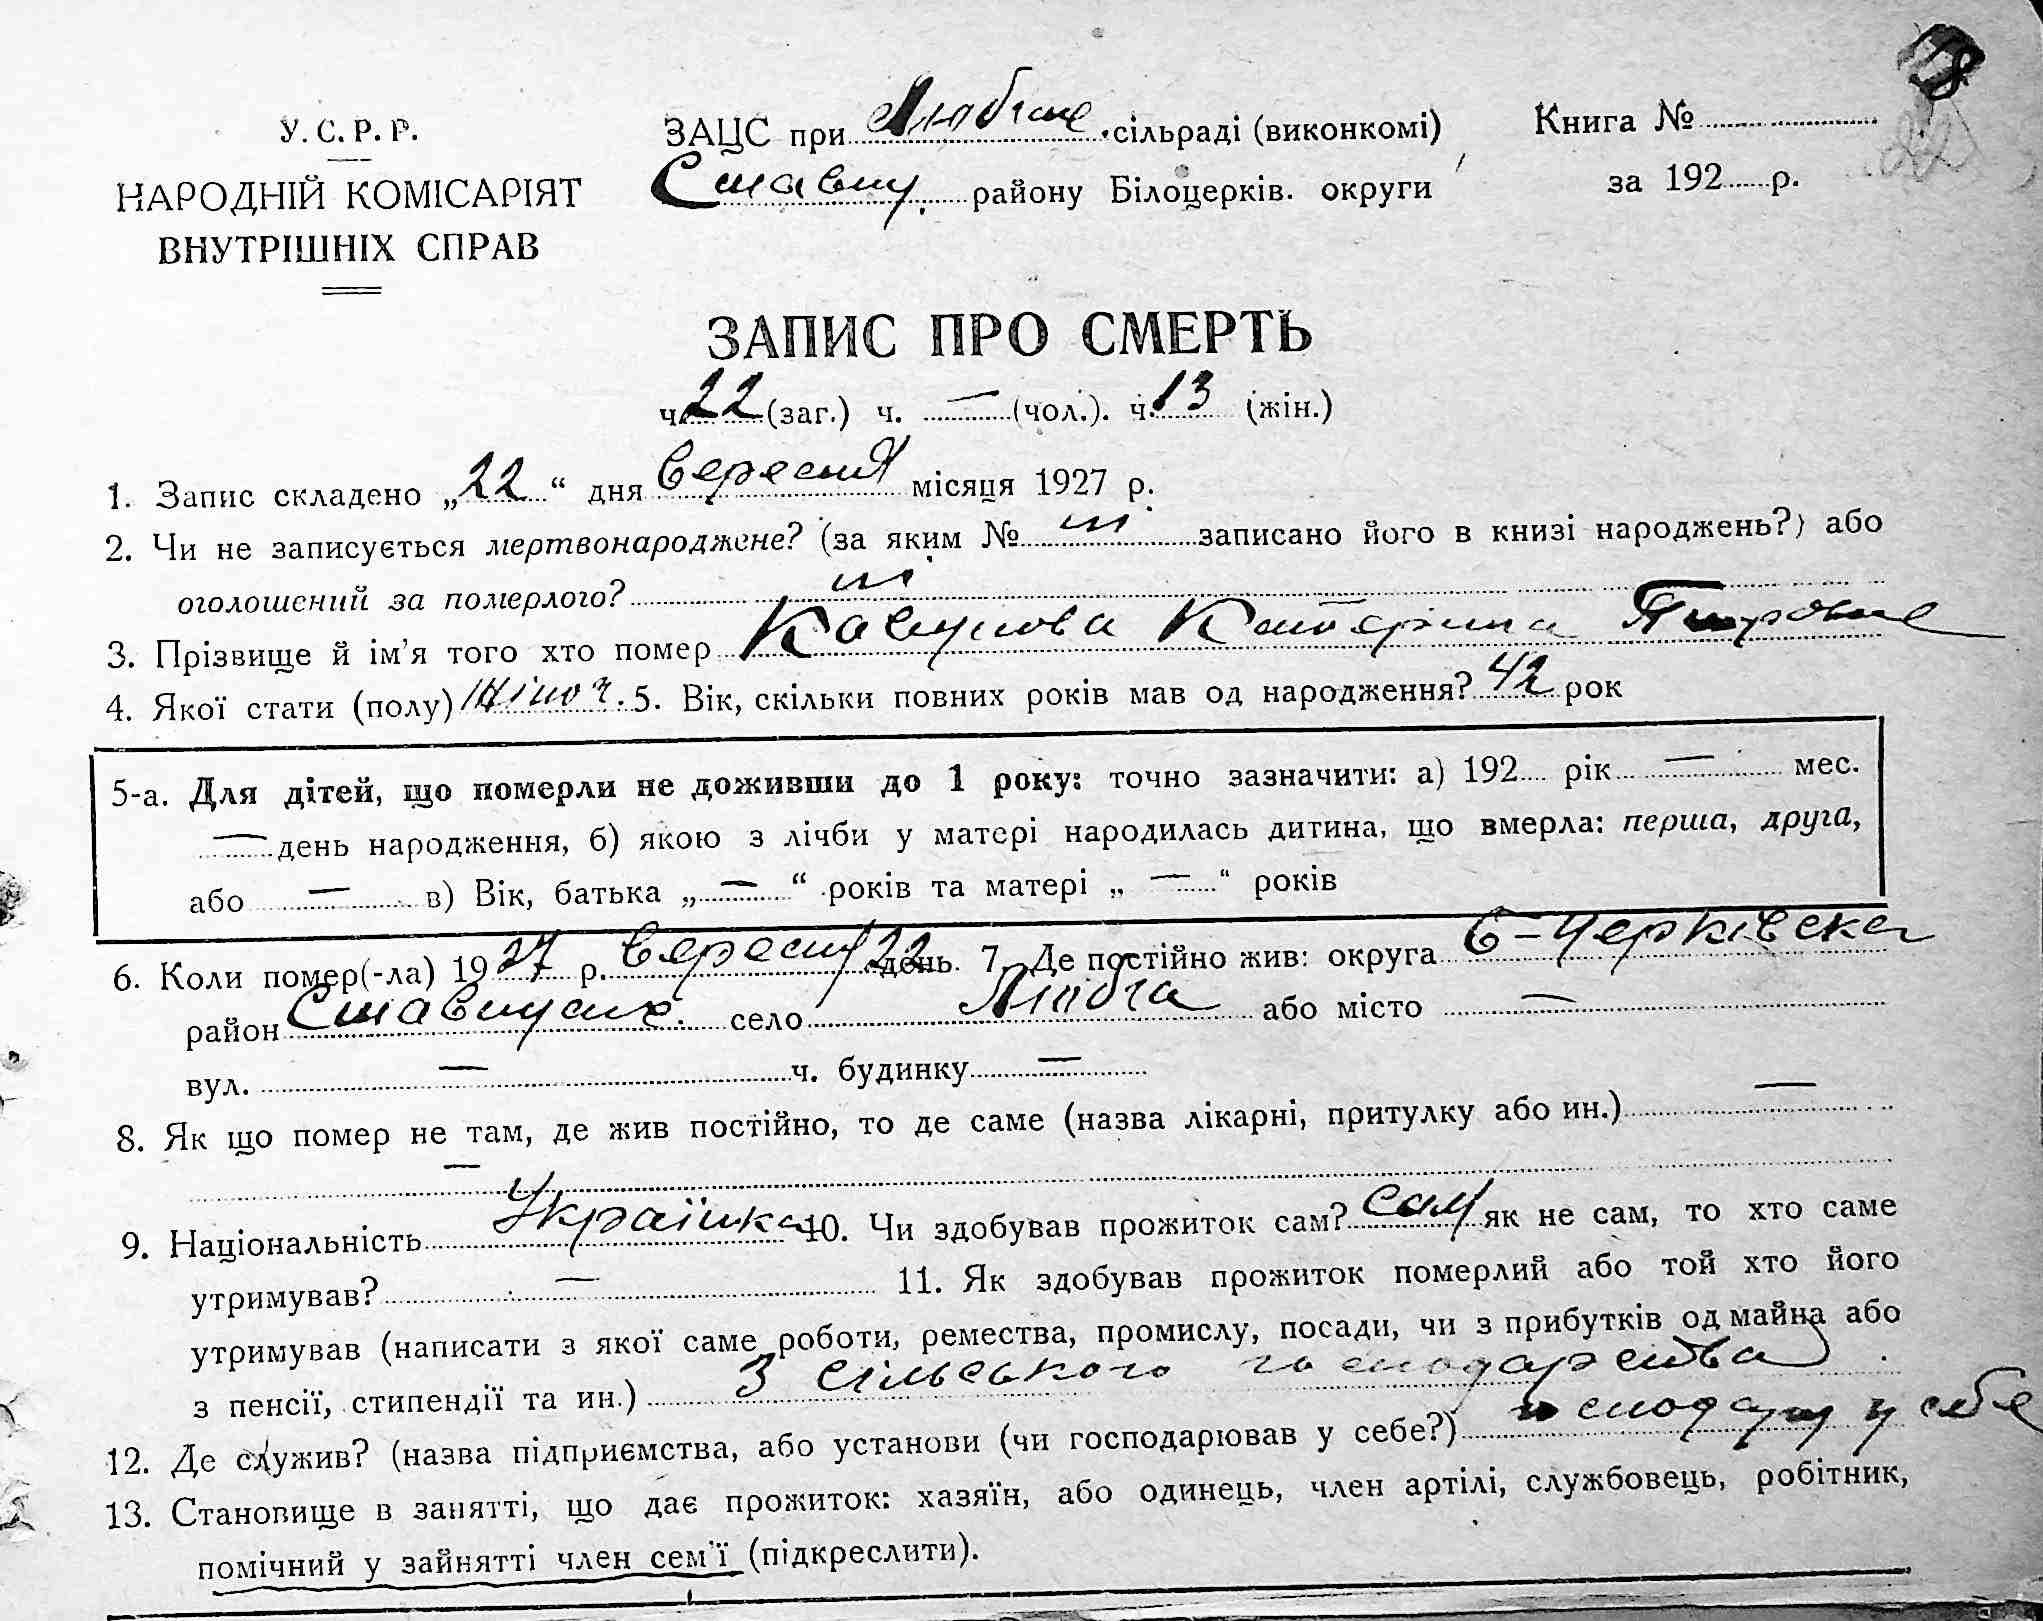 У. С. Р. Р.
НАРОДНІЙ КОМІСАРІЯТ
ВНУТРІШНІХ СПРАВ
ЗАЦС при сільраді (виконкомі)
району Білоцерків. округи
Книга №
за 192 р.
ЗАПИС ПРО СМЕРТЬ
ч. 22 (заг.) ч. — (чол.). ч. 13 (жін.)
1. Запис складено „22“ дня Вересня місяця 1927 р.
2. Чи не записується мертвонароджене? (за яким № ні записано його в книзі народжень?) або
оголошений за померлого? ні
3. Прізвище й ім'я того хто помер Катерина
4. Якої стати (полу) жіноч. 5. Вік, скільки повних років мав од народження? 42 рок
5-а. Для дітей, що померли не доживши до 1 року: точно зазначити: а) 192 рік — мес.
— день народження, б) якою з лічби у матері народилась дитина, що вмерла: перша, друга,
або — в) Вік, батька „—“ років та матері „—“ років
6. Коли помер(-ла) 1927 р. Вересня 22 день. 7. Де постійно жив: округа Б-Церківська
район село Любча або місто —
вул. — ч. будинку —
8. Як що помер не там, де жив постійно, то де саме (назва лікарні, притулку або ин.) —
—
9. Національність Українка 10. Чи здобував прожиток сам? сам як не сам, то хто саме
утримував? — 11. Як здобував прожиток померлий або той хто його
утримував (написати з якої саме роботи, ремества, промислу, посади, чи з прибутків од майна або
з пенсії, стипендії та ин.) З сільського господарства
12. Де служив? (назва підприємства, або установи (чи господарював у себе?) у себе
13. Становище в занятті, що дає прожиток: хазяїн, або одинець, член артілі, службовець, робітник,
помічний у зайнятті член сем'ї (підкреслити).